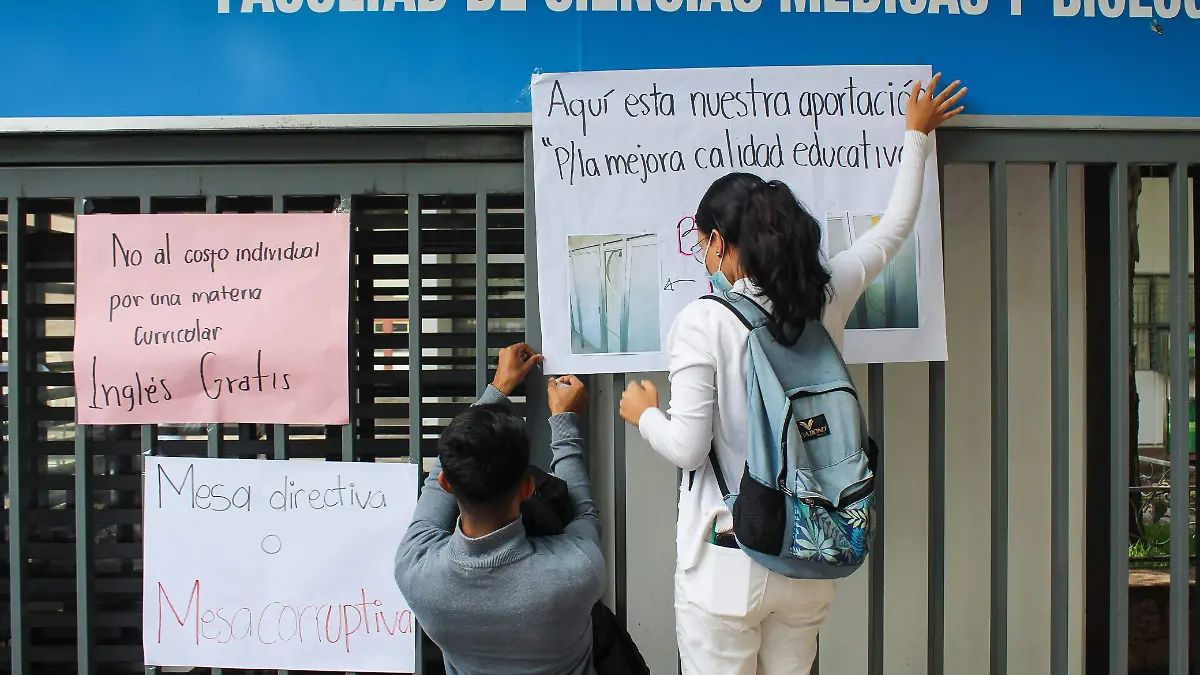 FACULTAD DE CIENCIAS MÉDICAS Y
Aquí esta nuestra aportación
"P/la mejora calidad educativa
No al costo individual
por una materia
curricular
Inglés Gratis
Mesa directiva
o
Mesa corruptiva